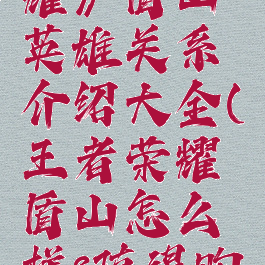 耀》盾山
英雄关系
介绍大全(
王者荣耀
盾山怎么